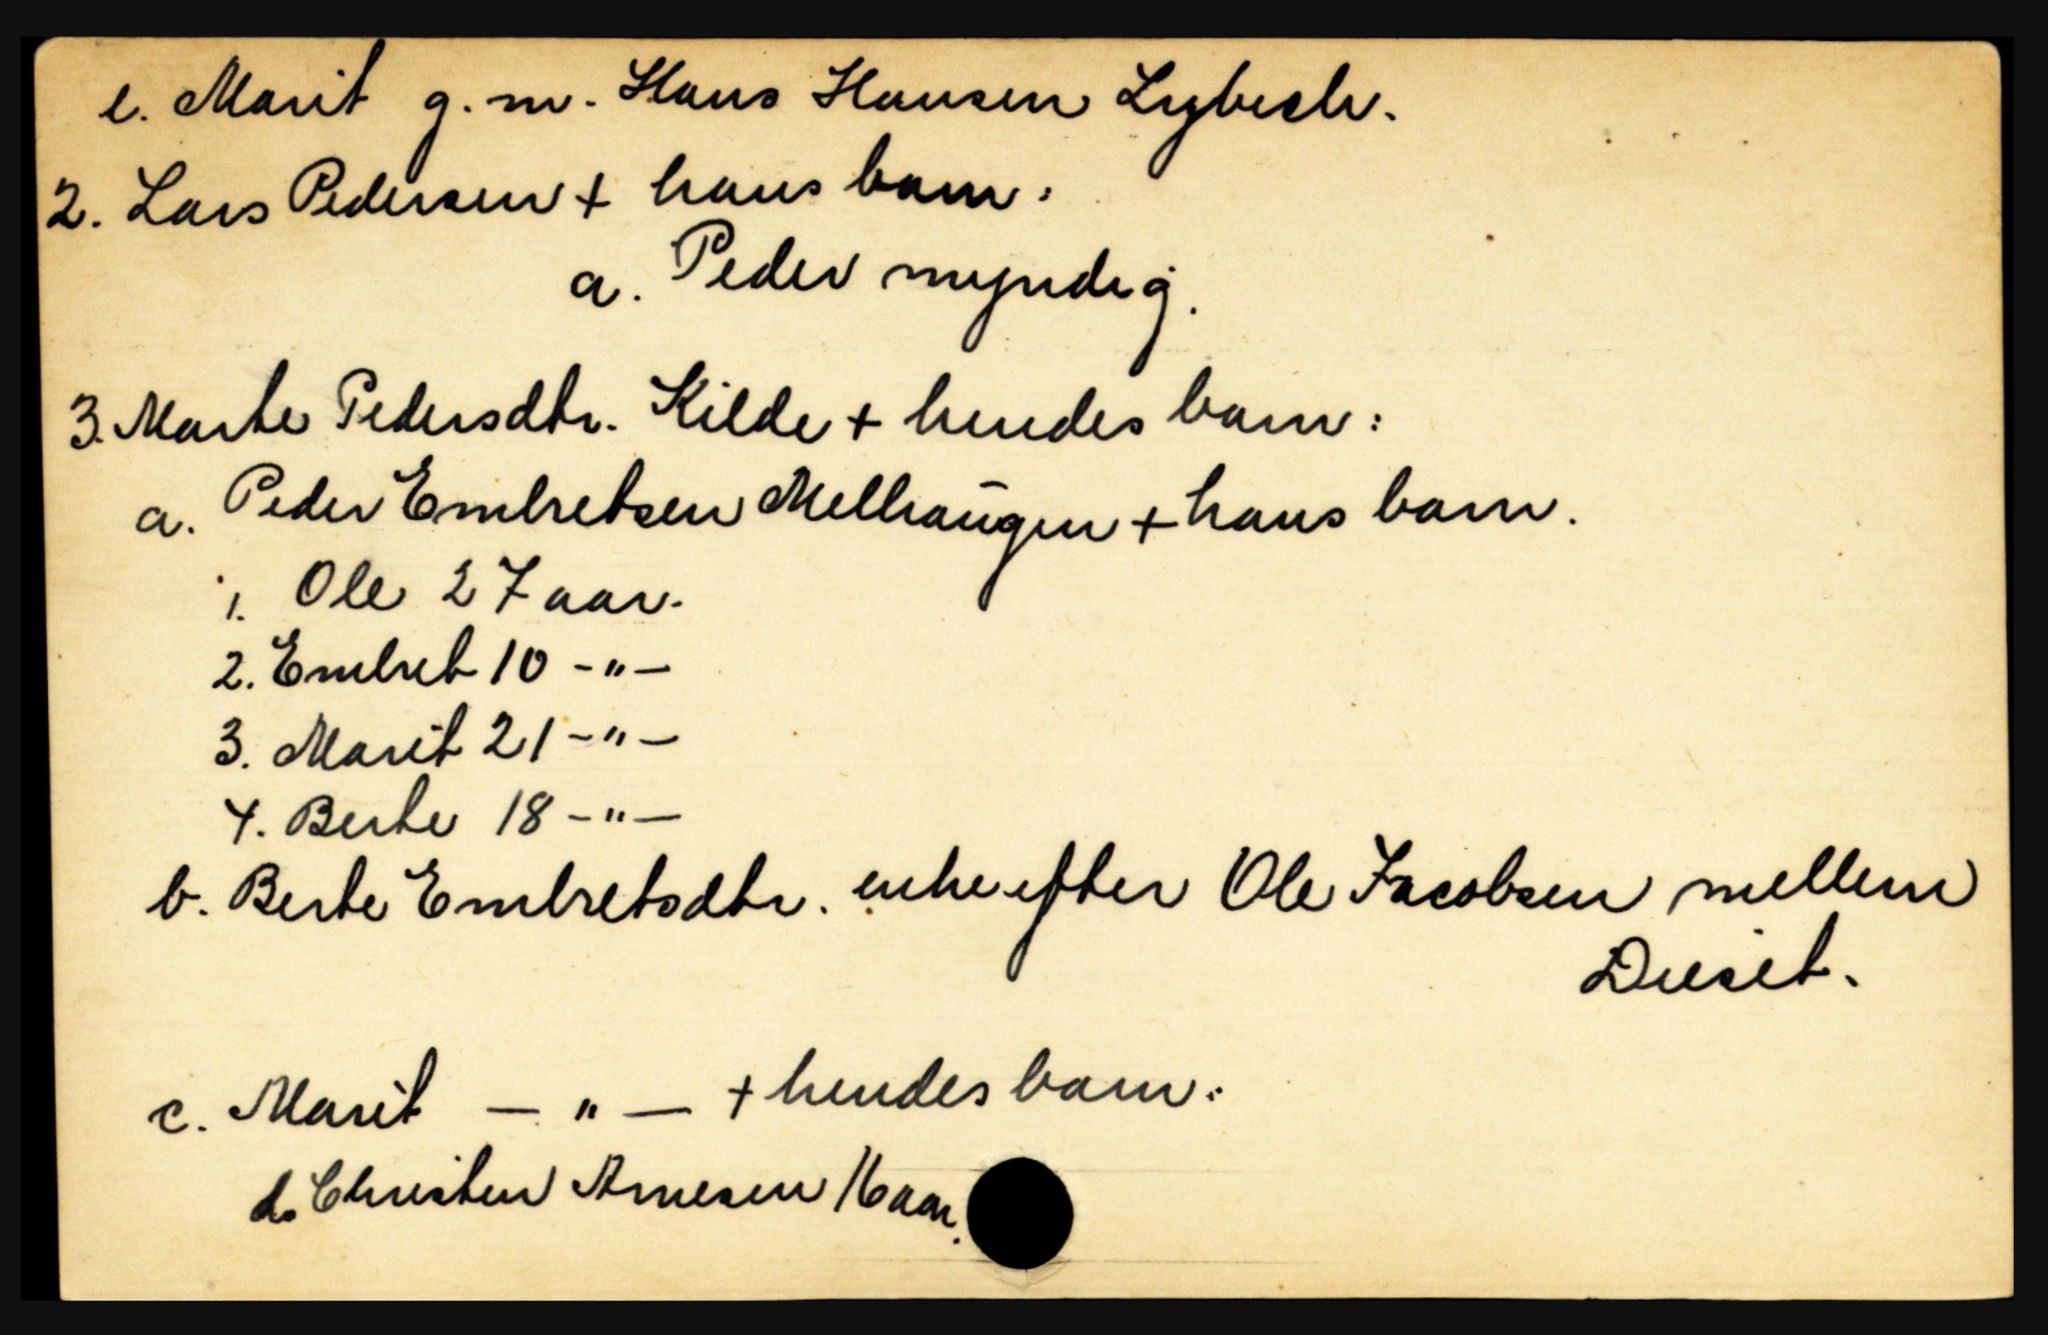 e. Marit g. m. Hans Hansen Lybech.
2. Lars Pedersen + hans barn:
a. Peder myndig.
3. Marte Pedersdtr. Kilde + hendes barn:
a. Peder Embretsen Melhaugen + hans barn.
1. Ole 27 aar.
2. Embret 10 -"-
3. Marit 21 -"-
4. Berte 18 -"-
b. Berte Embretsdtr. enke efter Ole Jacobsen mellem
Deset.
c. Marit - " - + hendes barn:
d. Christen Arnesen 16 aar.